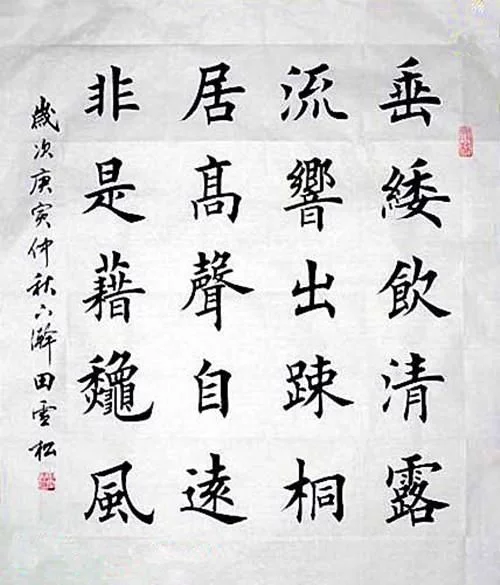 垂緌飲清露
流響出踈桐
居髙聲自遠
非是藉龝風
歲次庚寅仲秋下澣田雪松